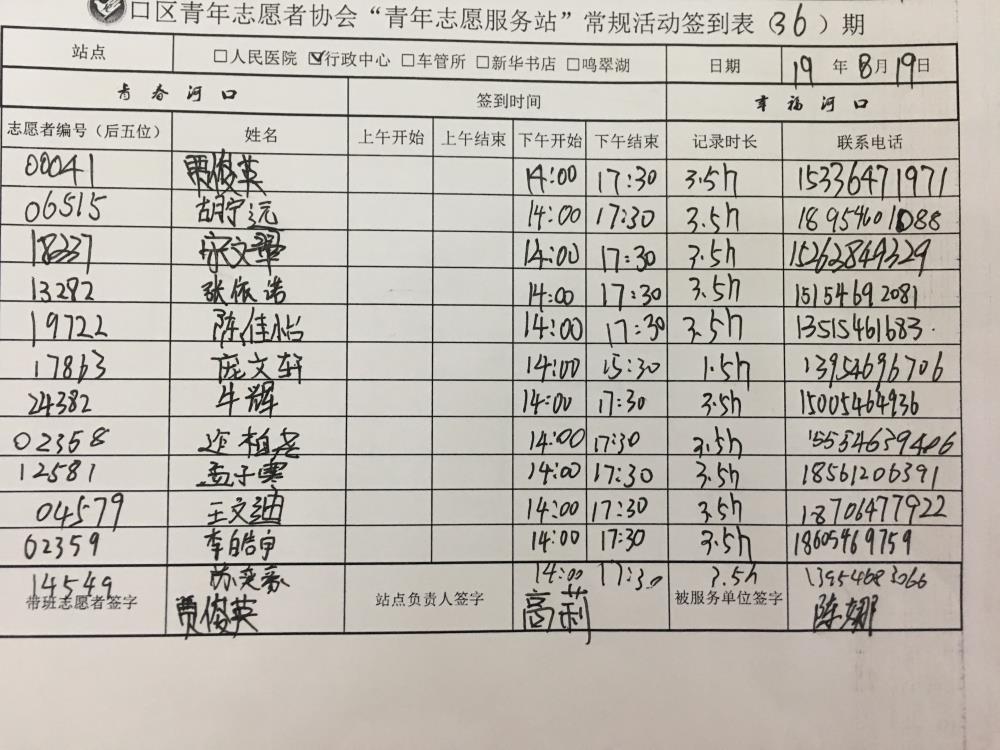 口区青年志愿者协会“青年志愿服务站”常规活动签到表（36）期
站点 □人民医院 ☑行政中心 □车管所 □新华书店 □鸣翠湖 日期 19 年 8月 19日
青春河口 签到时间 幸福河口
志愿者编号（后五位） 姓名 上午开始 上午结束 下午开始 下午结束 记录时长 联系电话
00041 贾俊英 14:00 17:30 3.5h 15336471971
06515 胡宁远 14:00 17:30 3.5h 18954601088
18337 宋文 14:00 17:30 3.5h 15263849329
13282 张依诺 14:00 17:30 3.5h 15154692081
19722 陈佳怡 14:00 17:30 3.5h 13515461683
17863 庞文轩 14:00 15:30 1.5h 13954696706
24382 牛辉 14:00 17:30 3.5h 15005464936
02358 柏尧 14:00 17:30 3.5h 15554639406
12581 孟子寒 14:00 17:30 3.5h 18561206391
04579 王文迪 14:00 17:30 3.5h 18706477922
02359 李皓宇 14:00 17:30 3.5h 18605469759
14549 苏奕豪 14:00 17:30 3.5h 13954683066
带班志愿者签字 贾俊英 站点负责人签字 高莉 被服务单位签字 陈娜